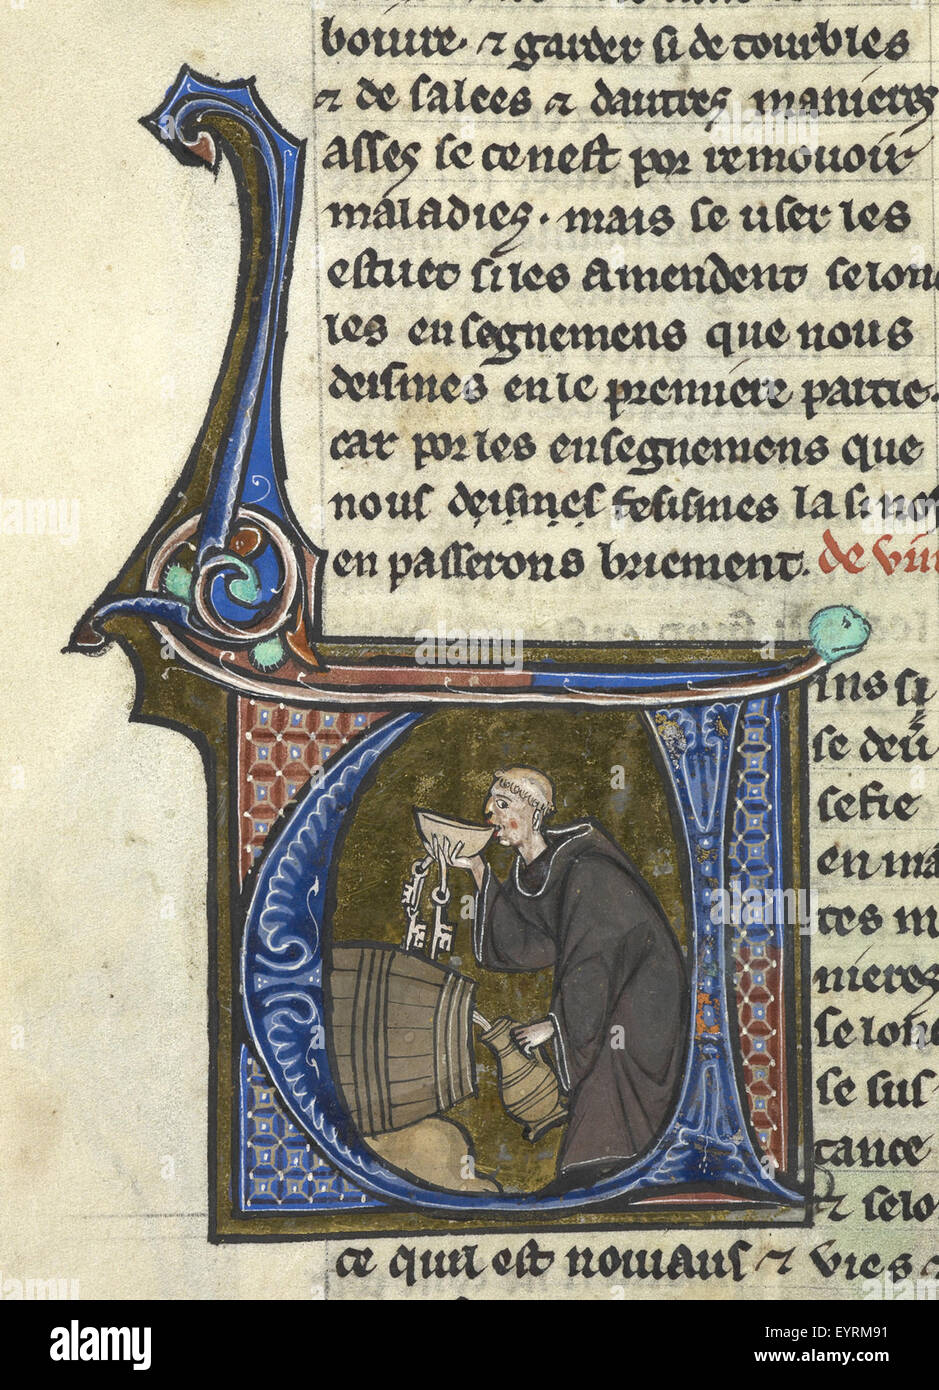 boivre · ⁊ garder si de tourbles
⁊ de salees ⁊ dautres manieres
asses se ce nest por remouoir
maladies · mais se user les
estuet si les amendent selonc
les ensegnemens que nous
deismes en le premiere partie ·
car por les ensegnemens que
nous deismes fesismes la si nos
en passerons briement . de vin
ins si
se deu
sefie
en ma
tes m
nieres
se lonc
se sus
tance
⁊ selo
ce quil est nouiaus ⁊ vies ⁊
alamy
www.alamy.com
Image ID: EYRM91